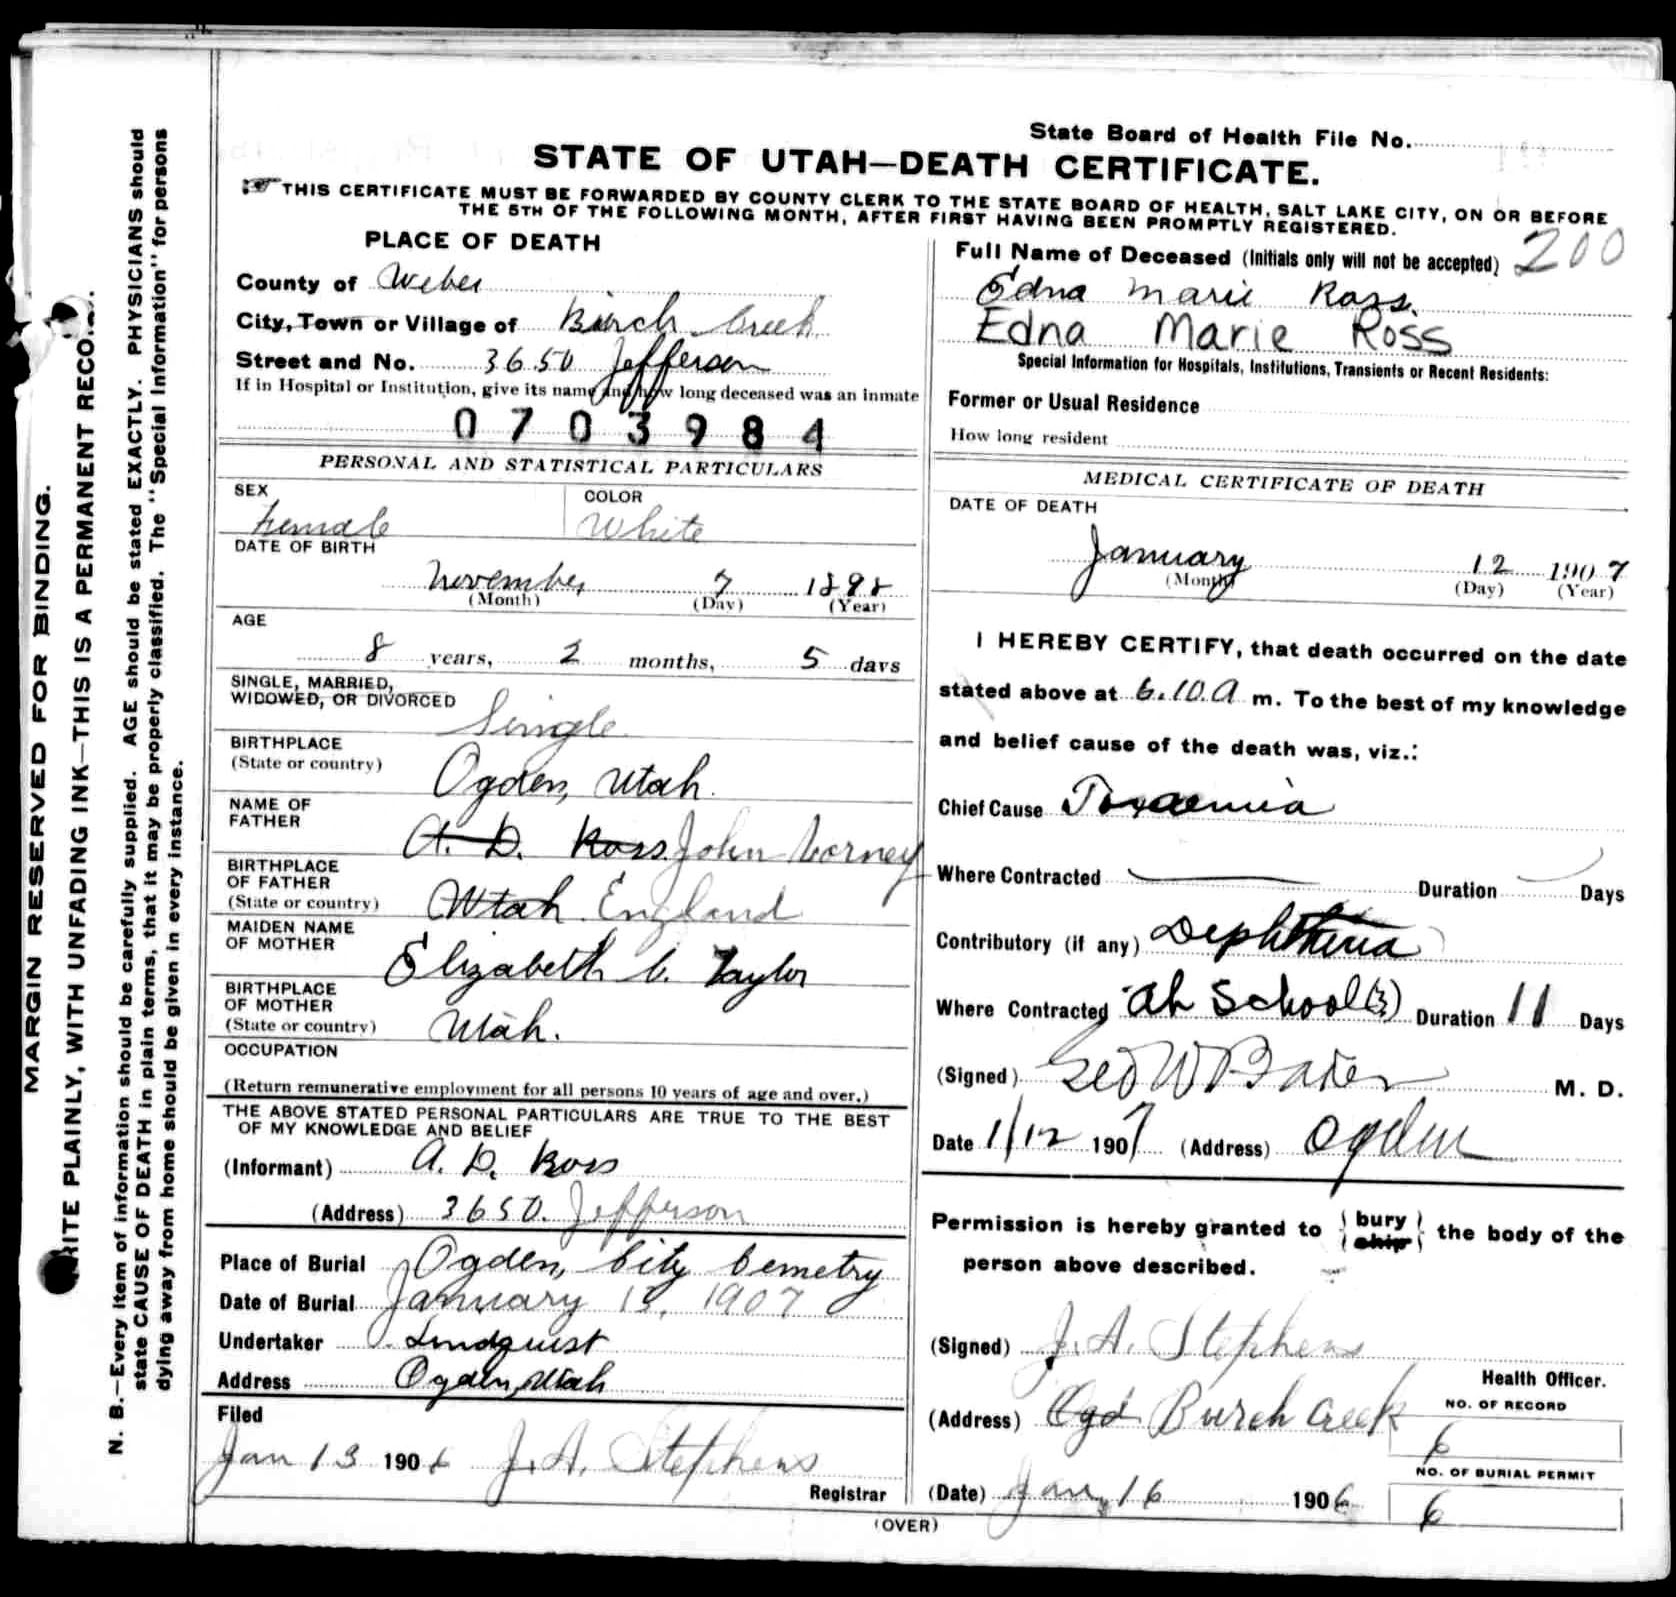 State Board of Health File No.
STATE OF UTAH—DEATH CERTIFICATE.
THIS CERTIFICATE MUST BE FORWARDED BY COUNTY CLERK TO THE STATE BOARD OF HEALTH, SALT LAKE CITY, ON OR BEFORE
THE 5TH OF THE FOLLOWING MONTH, AFTER FIRST HAVING BEEN PROMPTLY REGISTERED.
PLACE OF DEATH
County of Weber
City, Town or Village of Birch Creek
Street and No. 3650 Jefferson
If in Hospital or Institution, give its name and how long deceased was an inmate
0703984
PERSONAL AND STATISTICAL PARTICULARS
SEX COLOR
Female White
DATE OF BIRTH
November 7 1898
(Month) (Day) (Year)
AGE
8 years, 2 months, 5 days
SINGLE, MARRIED,
WIDOWED, OR DIVORCED
Single
BIRTHPLACE
(State or country)
Ogden, Utah.
NAME OF
FATHER
A. D. Ross. John Varney
BIRTHPLACE
OF FATHER
(State or country)
Utah. England
MAIDEN NAME
OF MOTHER
Elizabeth C. Taylor
BIRTHPLACE
OF MOTHER
(State or country)
Utah.
OCCUPATION
(Return remunerative employment for all persons 10 years of age and over.)
THE ABOVE STATED PERSONAL PARTICULARS ARE TRUE TO THE BEST
OF MY KNOWLEDGE AND BELIEF
(Informant) A. D. Ross
(Address) 3650. Jefferson
Place of Burial Ogden, City Cemetry
Date of Burial January 13, 1907
Undertaker Lindquist
Address Ogden, Utah
Filed
Jan 13 1906 J. A. Stephens
Registrar
200
Full Name of Deceased (Initials only will not be accepted)
Edna Marie Ross.
Edna Marie Ross
Special Information for Hospitals, Institutions, Transients or Recent Residents:
Former or Usual Residence
How long resident
MEDICAL CERTIFICATE OF DEATH
DATE OF DEATH
January 12 1907
(Month) (Day) (Year)
I HEREBY CERTIFY, that death occurred on the date
stated above at 6.10. A m. To the best of my knowledge
and belief cause of the death was, viz.:
Chief Cause Toxaemia
Where Contracted Duration Days
Contributory (if any) Diphtheria
Where Contracted at School (?) Duration 11 Days
(Signed) Geo W Baker M. D.
Date 1/12 1907 (Address) Ogden
Permission is hereby granted to bury ship the body of the
person above described.
(Signed) J. A. Stephens
Health Officer.
(Address) Ogd Burch Creek
NO. OF RECORD
6
NO. OF BURIAL PERMIT
6
(Date) Jan, 16 1906
(OVER)
MARGIN RESERVED FOR BINDING.
RITE PLAINLY, WITH UNFADING INK—THIS IS A PERMANENT RECO
N. B.—Every item of information should be carefully supplied. AGE should be stated EXACTLY. PHYSICIANS should
state CAUSE OF DEATH in plain terms, that it may be properly classified. The "Special Information" for persons
dying away from home should be given in every instance.